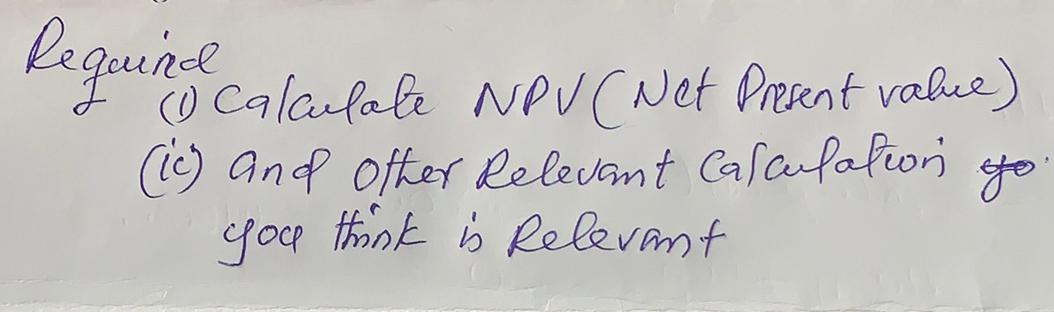 Required
(i) Calculate NPV (Net Present value)
(ii) and other Relevant Calculation yo
you think is Relevant